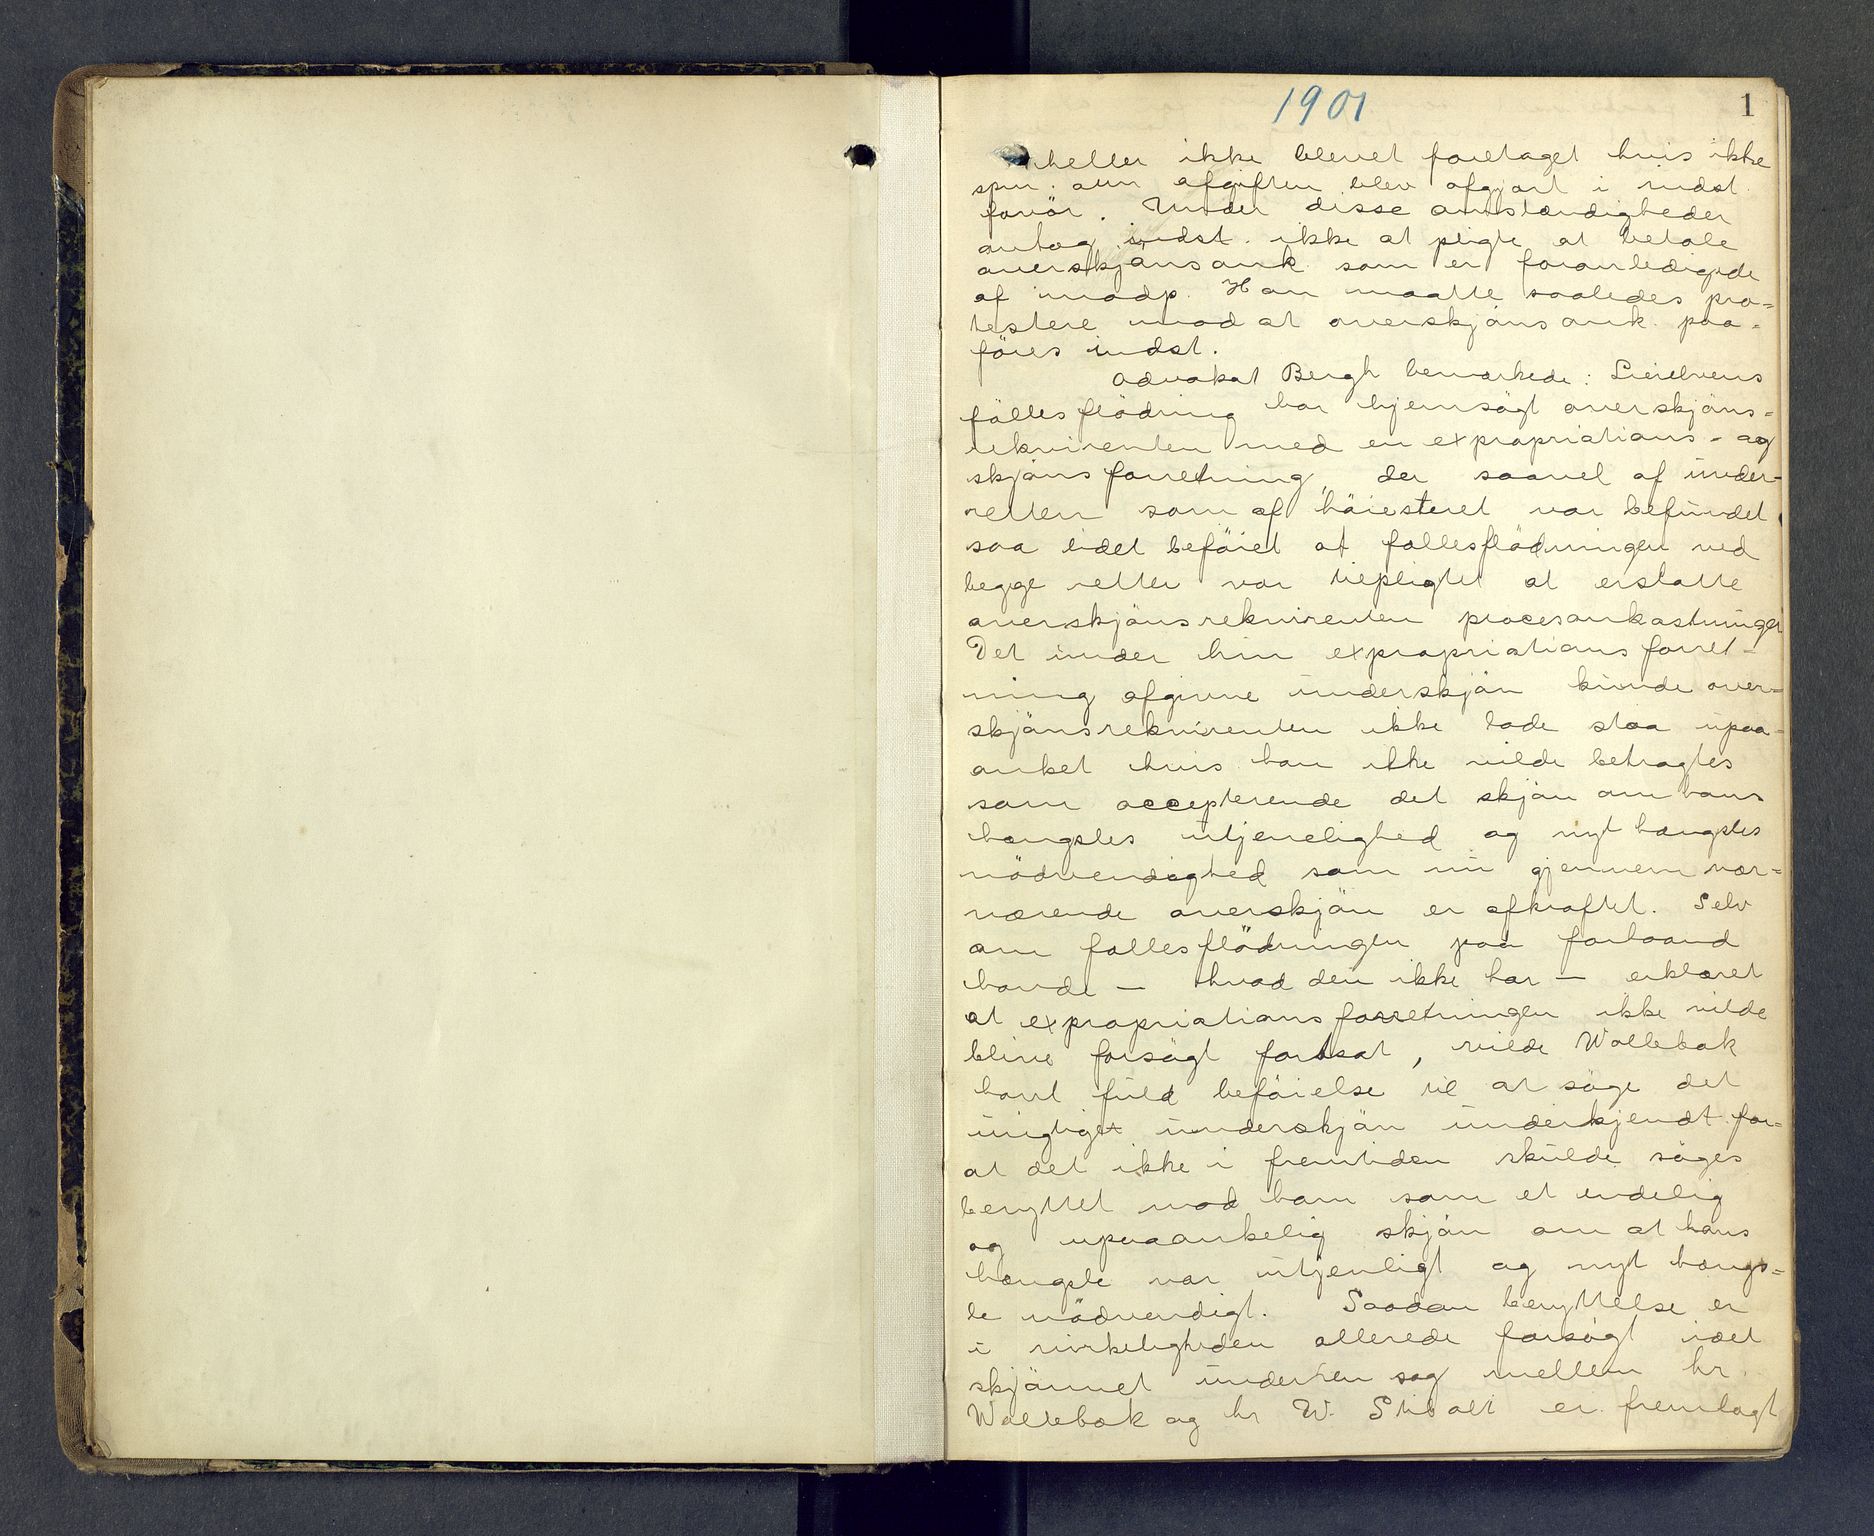 1901
1
heller ikke blevet foretaget hvis ikke
spm. om afgiften blev afgjort i indst.
favör. Under disse omstændigheder
antog indst. ikke at pligte at betale
overskjönsomk. som er foranledigede
af modp. Han maatte saaledes pro-
testere mod at overskjönsomk. paa-
föres indst.
Advokat Bergh bemærkede: Lierelvens
fællesflödning har hjemsögt overskjöns-
rekvirenten med en expropriations- og
skjönsforretning, der saavel af under-
retten som af höiesteret var befundet
saa lidet beföiet at fællesflödningen ved
begge retter var tilpligtet at erstatte
overskjönsrekvirenten procesomkostninger
Det under hin expropriationsforret-
ning afgivne underskjön kunde over-
skjönsrekvirenten ikke lade staa upaa-
anket hvis han ikke vilde betragtes
som accepterende det skjön om hans
hængsles utjenelighed og nyt hængsles
nödvendighed som nu gjennem nær-
værende overskjön er afkræftet. Selv
om fællesflödningen paa forhaand
havde — hvad den ikke har — erklæret
at expropriationsforretningen ikke vilde
blive forsögt fortsat, vilde Wollebæk
havt fuld beföielse til at söge det
urigtiget underskjön underkjendt for-
at det ikke i fremtiden skulde söges
benyttet mod ham som et endelig
og upaaankelig skjön om at hans
hængsle var utjenligt og nyt hængs-
le nödvendigt. Saadan benyttelse er
i virkeligheden allerede forsögt idet
skjönnet under en sag mellem hr.
Wollebæk og hr W. Stibolt er fremlagt